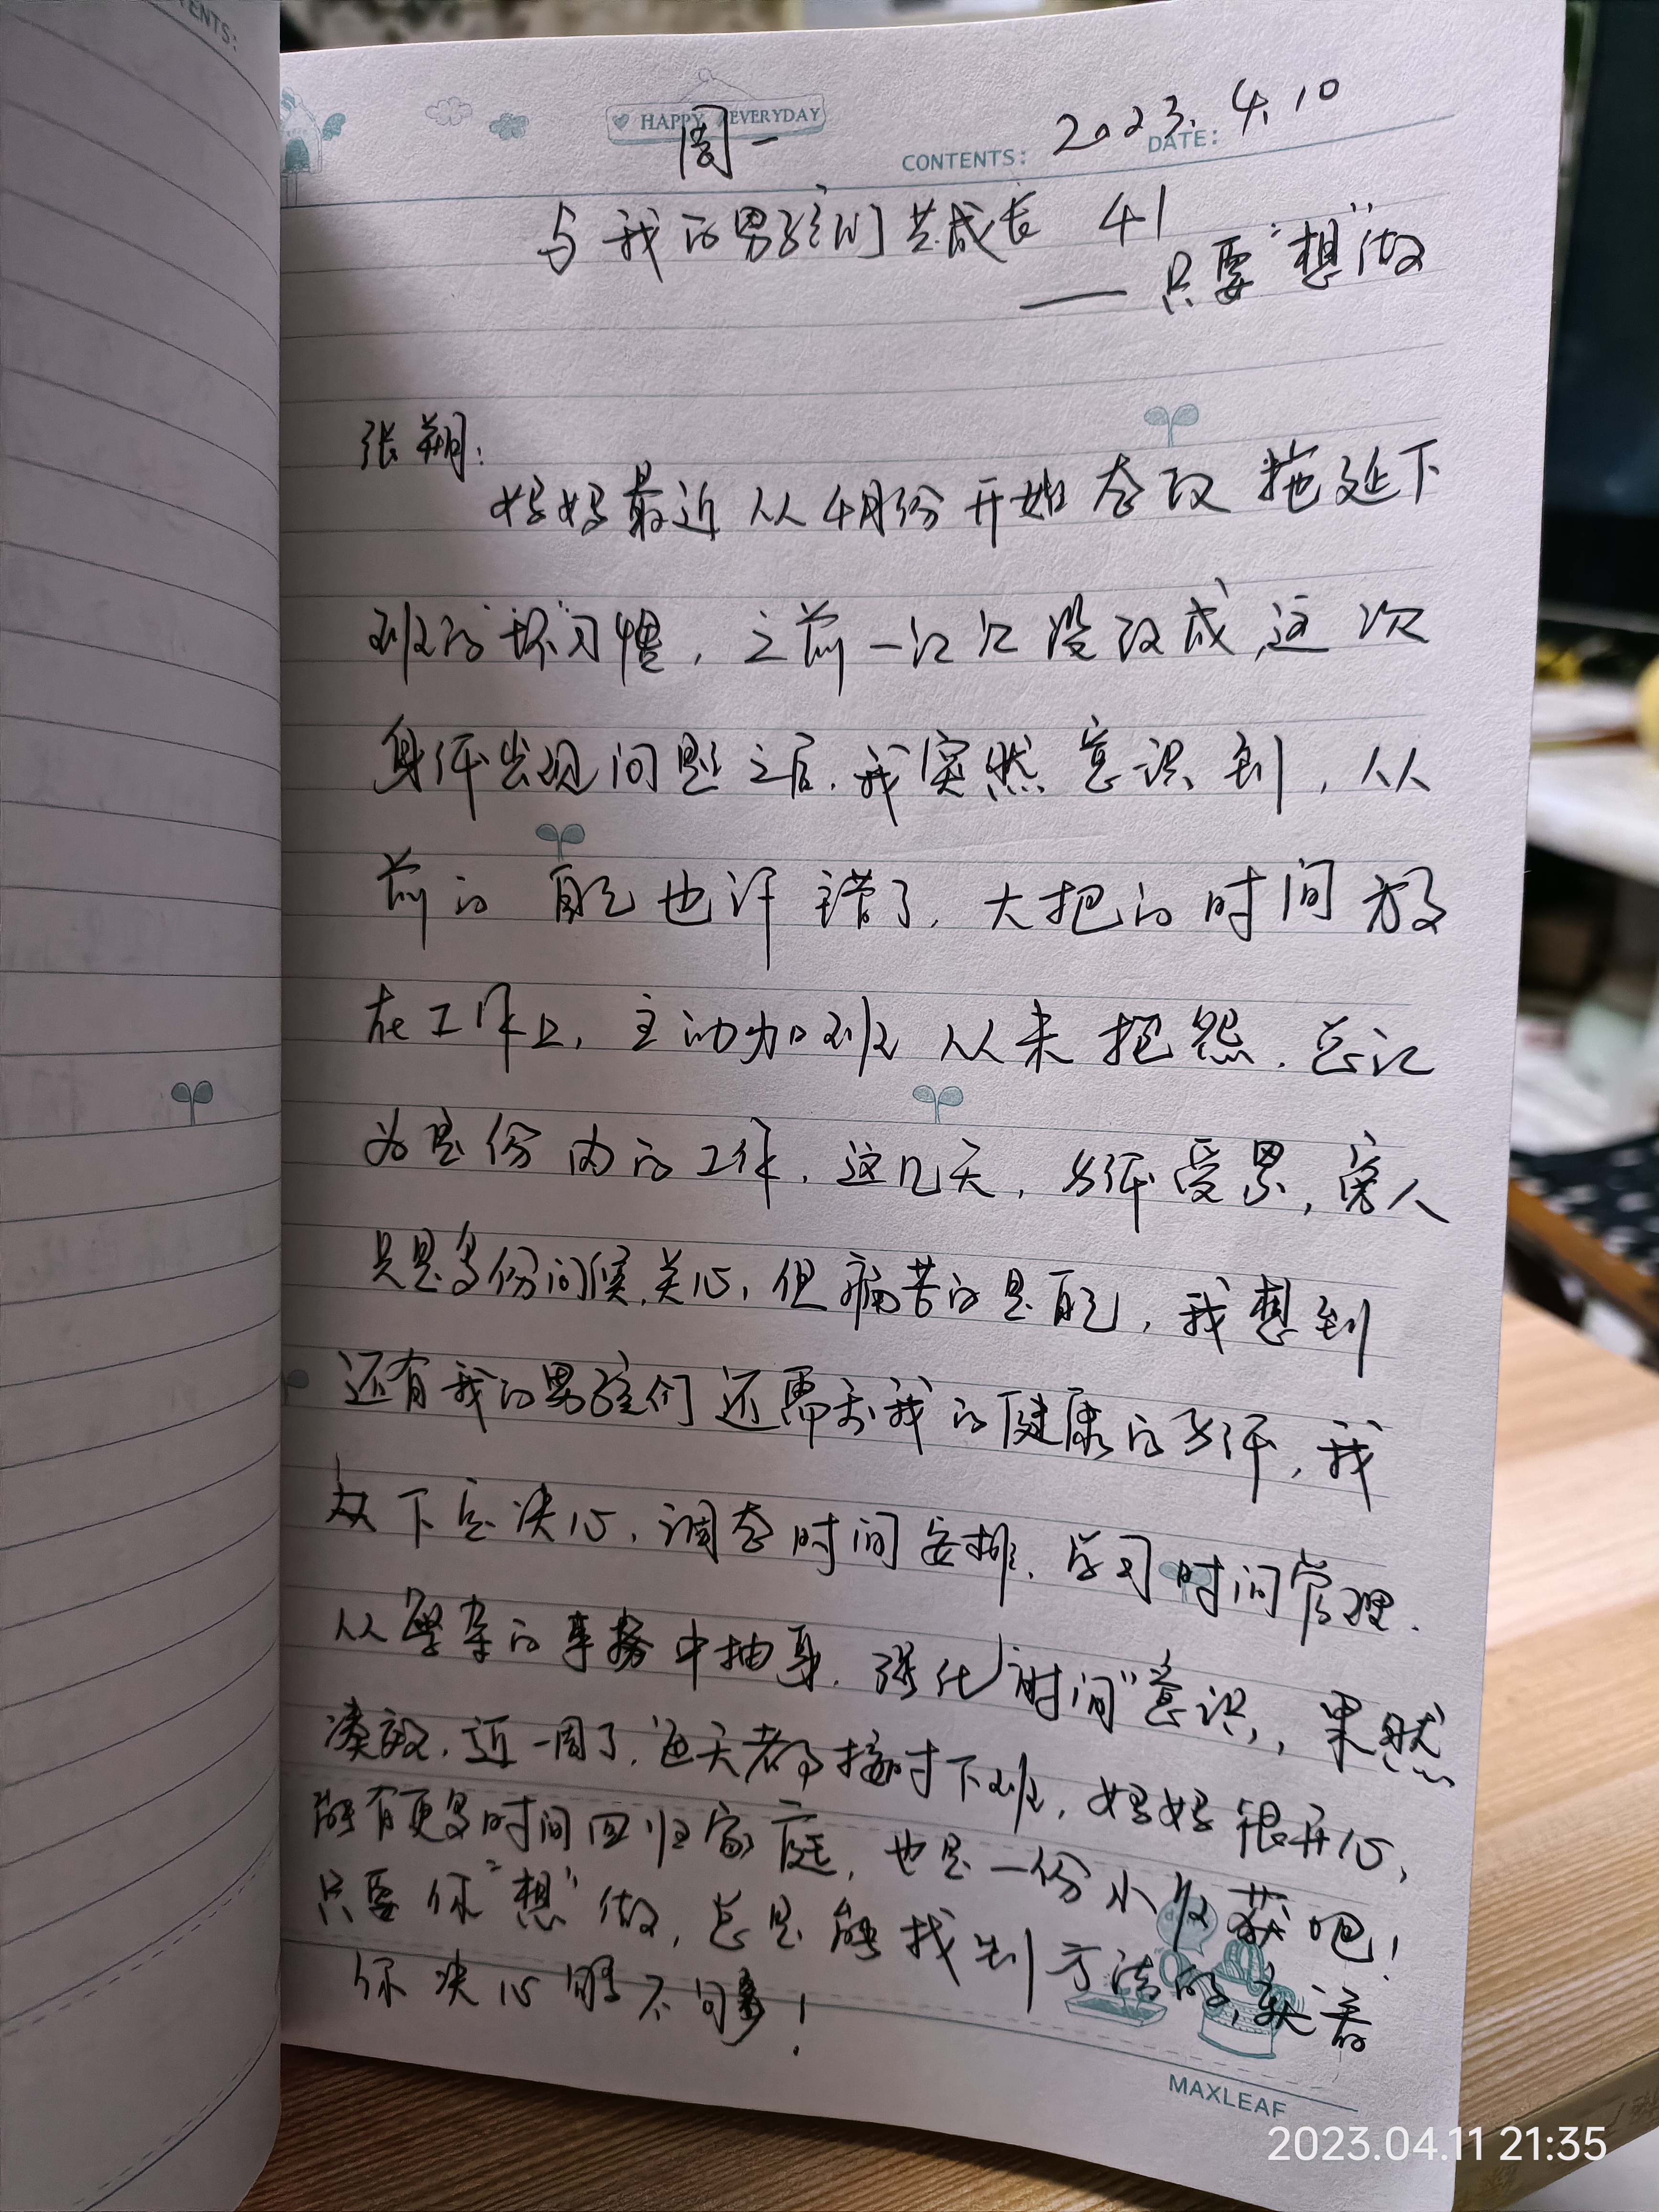 TENTS:
HAPPY EVERYDAY
周一
CONTENTS:
DATE:
2023.4.10
与我的男孩们共成长 41
——只要“想”做
张朔:
妈妈最近从4月份开始在改拖延下
班的“坏”习惯,之前一次次没改成,这次
身体出现问题之后,我突然意识到,从
前的自己也许错了,大把的时间放
在工作上,主动加班从未抱怨,总认
为是份内的工作,这几天,身体受累,旁人
只是多份问候,关心,但痛苦的是自己,我想到
还有我的男孩们还需要我的健康的身体,我
下定决心,调整时间安排,学习时间管理.
从繁杂的事务中抽身,强化“时间”意识,果然
凑效,近一周了,每天都按时下班,妈妈很开心,
能有更多时间回归家庭,也是一份小收获吧!
只要你“想”做,总是能找到方法的,关键看
你决心够不够!
MAXLEAF
2023.04.11 21:35